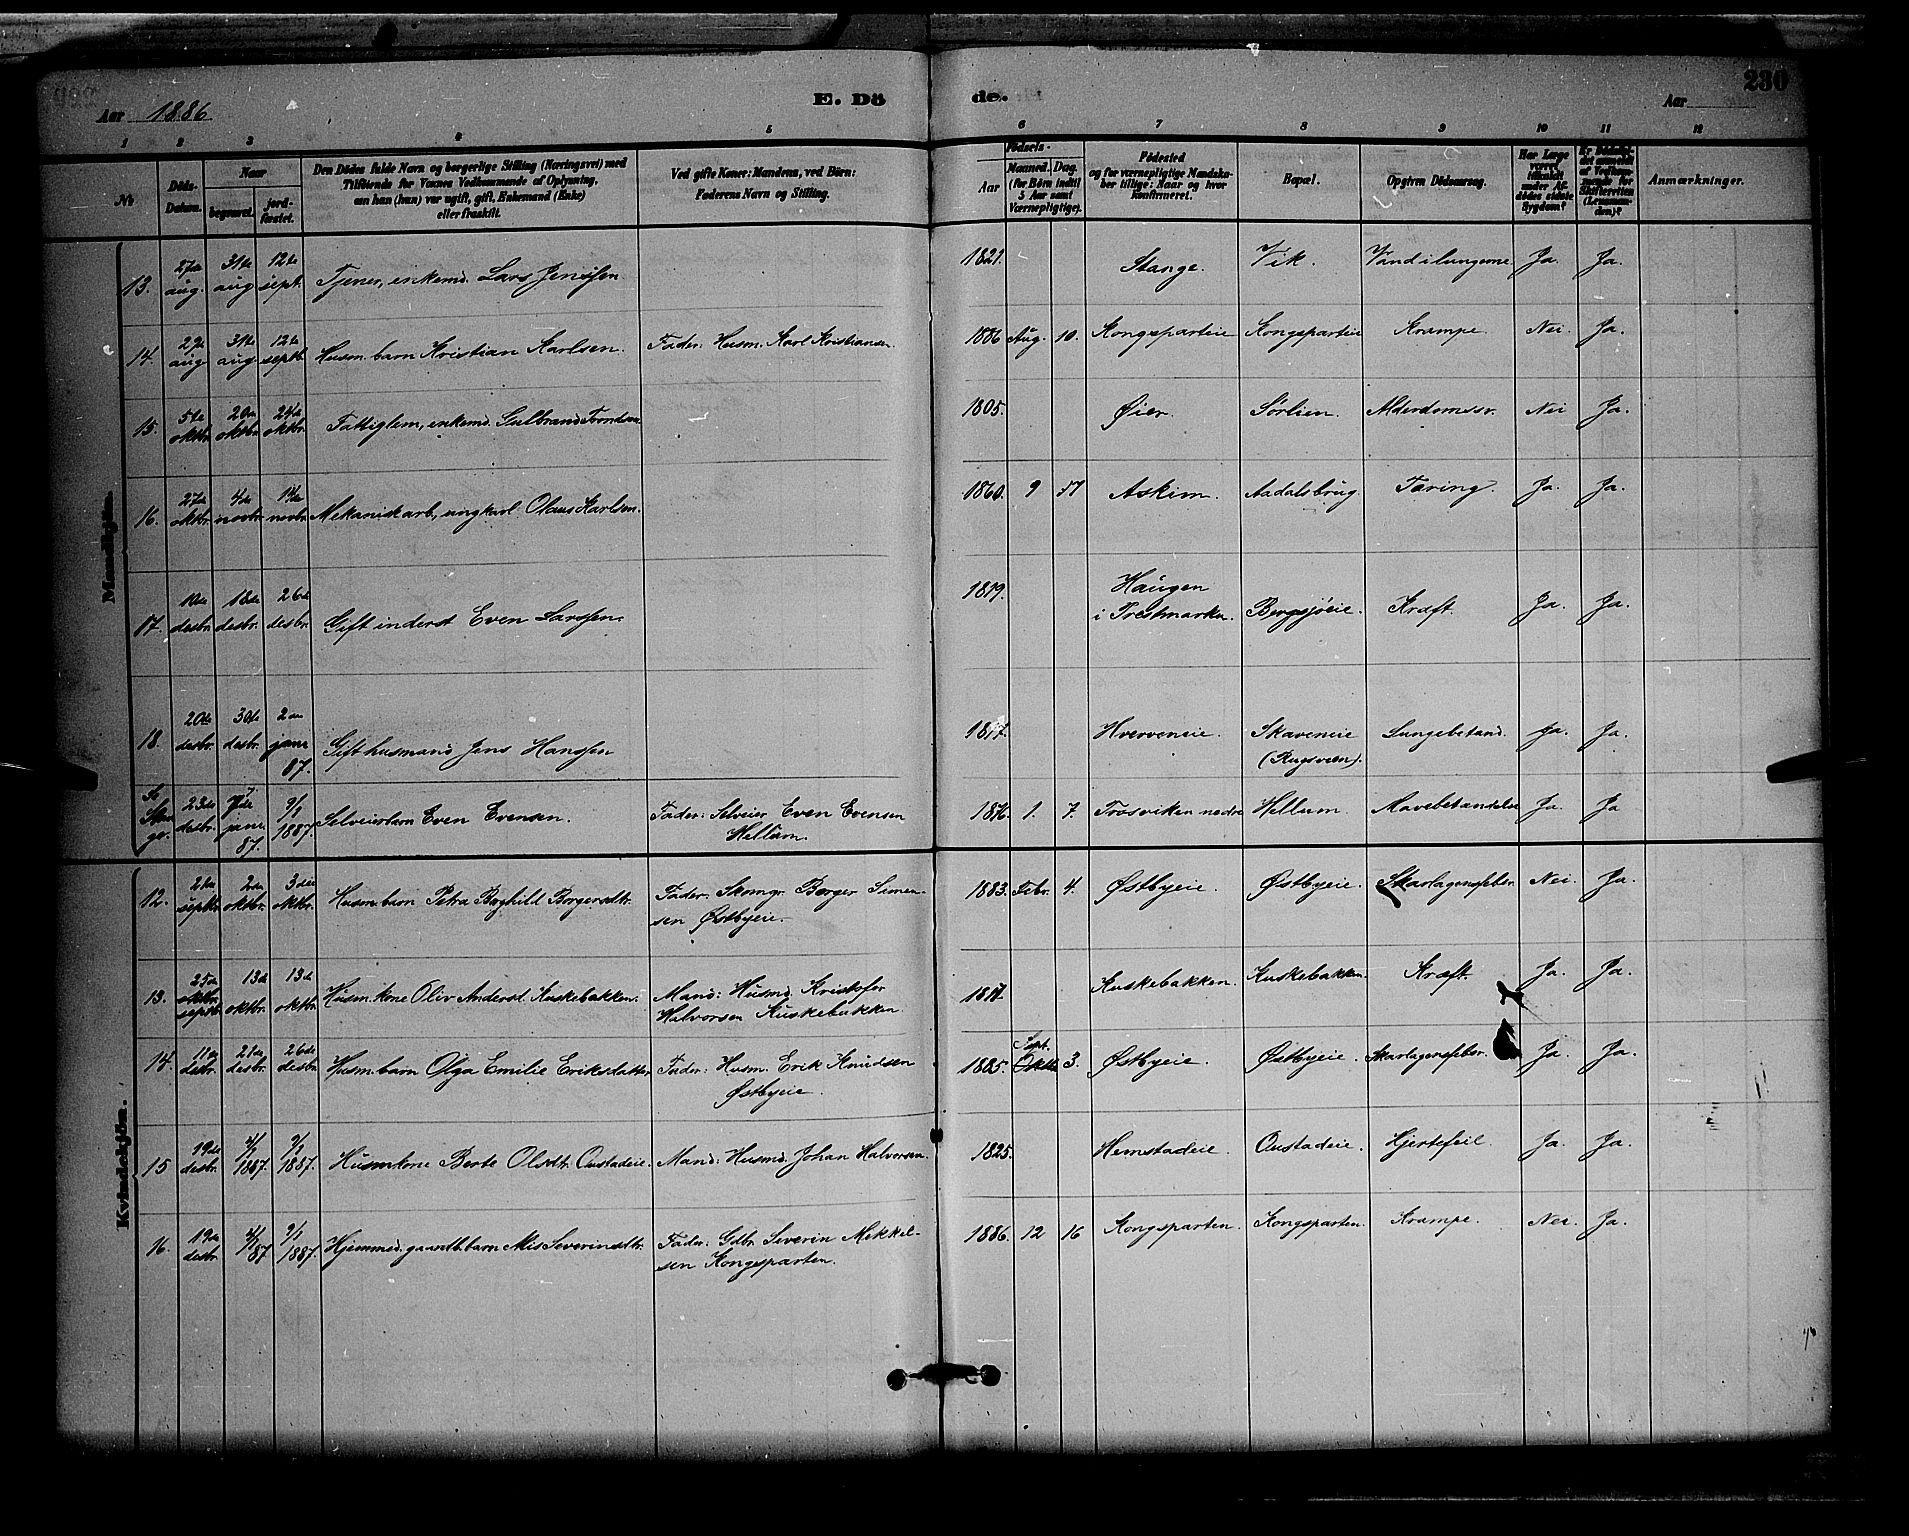 Aar 1886 E. Dö de. Aar 230
1 2 3 4 5 6 7 8 9 10 11 12
No Döds-Datum. Naar begravet. jord-fæstet. Den Dödes fulde Navn og borgerlige Stilling (Næringsvei) med Tilföiende for Voxnes Vedkommende af Oplysning, om han (hun) var ugift, gift, Enkemand (Enke) eller fraskilt. Ved gifte Koner: Mandens, ved Börn: Faderens Navn og Stilling. Födsels- Aar Maaned. Dag. (for Börn indtil 5 Aar samt Værnepligtige). Födested og for værnepligtige Mandska-ber tillige: Naar og hvor Konfirmeret. Bopæl. Opgiven Dödsaarsag. Har Læge været tilkaldt under Af-dödes sidste Sygdom? Er Dödsfal-det anmeldt af Vedkom-mende for Skifteretten (Lensman-den)? Anmærkninger.
Mandkjön.
13. 27de aug. 31te aug 12te sept. Tjener, enkemd. Lars Jenssen 1821. Stange. Vik. Vand i lungerne Ja. Ja.
14. 27de aug. 31te aug. 12te septb. Husm. barn Kristian Karlsen. Fader: Husm. Karl Kristiansen. 1886 Aug. 10. Kongsparteie Kongsparteie Krampe. Nei. Ja.
15. 5te oktbr. 20de oktbr. 24de oktbr. Fattiglem, enkemd. Gulbrand Trondsen 1805. Øier. Sørlien. Alderdomssv. Nei Ja.
16. 27de oktbr. 4de novbr. 14de novbr. Mekanisk arb., ungkarl Olaus Karlsen. 1860. 9 27 Askim. Aadalsbrug. Tæring. Ja. Ja.
17. 10de desbr. 18de desbr. 26de desbr. Gift inderst Even Larssen. 1819. Haugen i Trestmarka. Bergsjøeie. Kræft. Ja. Ja.
18. 20de desbr. 30te desbr. 2den janr 87. Gift husmand Jens Hanssen 1817. Hverveneie. Skaveneie (Rugsveen). Lungebetænd. Ja. Ja.
Se Stan ge. 23de desbr. 7de janr. 87. 9/1 1887. Selveierbarn Even Evensen. Fader: Selveier Even Evensen Hellum. 1876. 1. 7. Frøsviken nedre Hellum. Mavebetændelse Ja. Ja
Kvindekjön.
12. 21de septbr. 2den oktbr. 3die oktbr. Husm. barn Petra Borghild Borgersdtr. Fader: Skomgr. Borger Simensen Østbyeie. 1883. Febr. 4. Østbyeie. Østbyeie. Skarlagensfeber. Nei. Ja.
13. 25de septbr. 13de oktbr. 13de oktbr. Husm. kone Oliv Andersd. Kuskebakken. Mand: Husmd. Kristofer Halvorsen Kuskebakken. 1817. Kuskebakken. Kuskebakken. Kræft. Ja. Ja.
14. 11te desbr. 21de desbr. 26de desbr. Husm. barn Olga Emilie Eriksdatter. Fader: Husm. Erik Knudsen Østbyeie. 1885. Sept. 3. Østbyeie. Østbyeie. Skarlagensfeber. Ja. Ja.
15 19de desbr. 4/1 1887 9/1 1887. Husmkone Berte Olsdtr. Oustadeie. Mand: Husmd. Johan Halvorsen. 1825. Hemstadeie. Oustadeie. Hjertefeil. Ja. Ja.
16. 19de desbr. 4/1 87 9/1 1887. Hjemmed. gaardb. barn Mis Severinsdtr. Fader: Gdbr. Severin Mikkelsen Kongsparten. 1886. 12 16 Kongsparten. Kongsparten. Krampe. Nei. Ja.